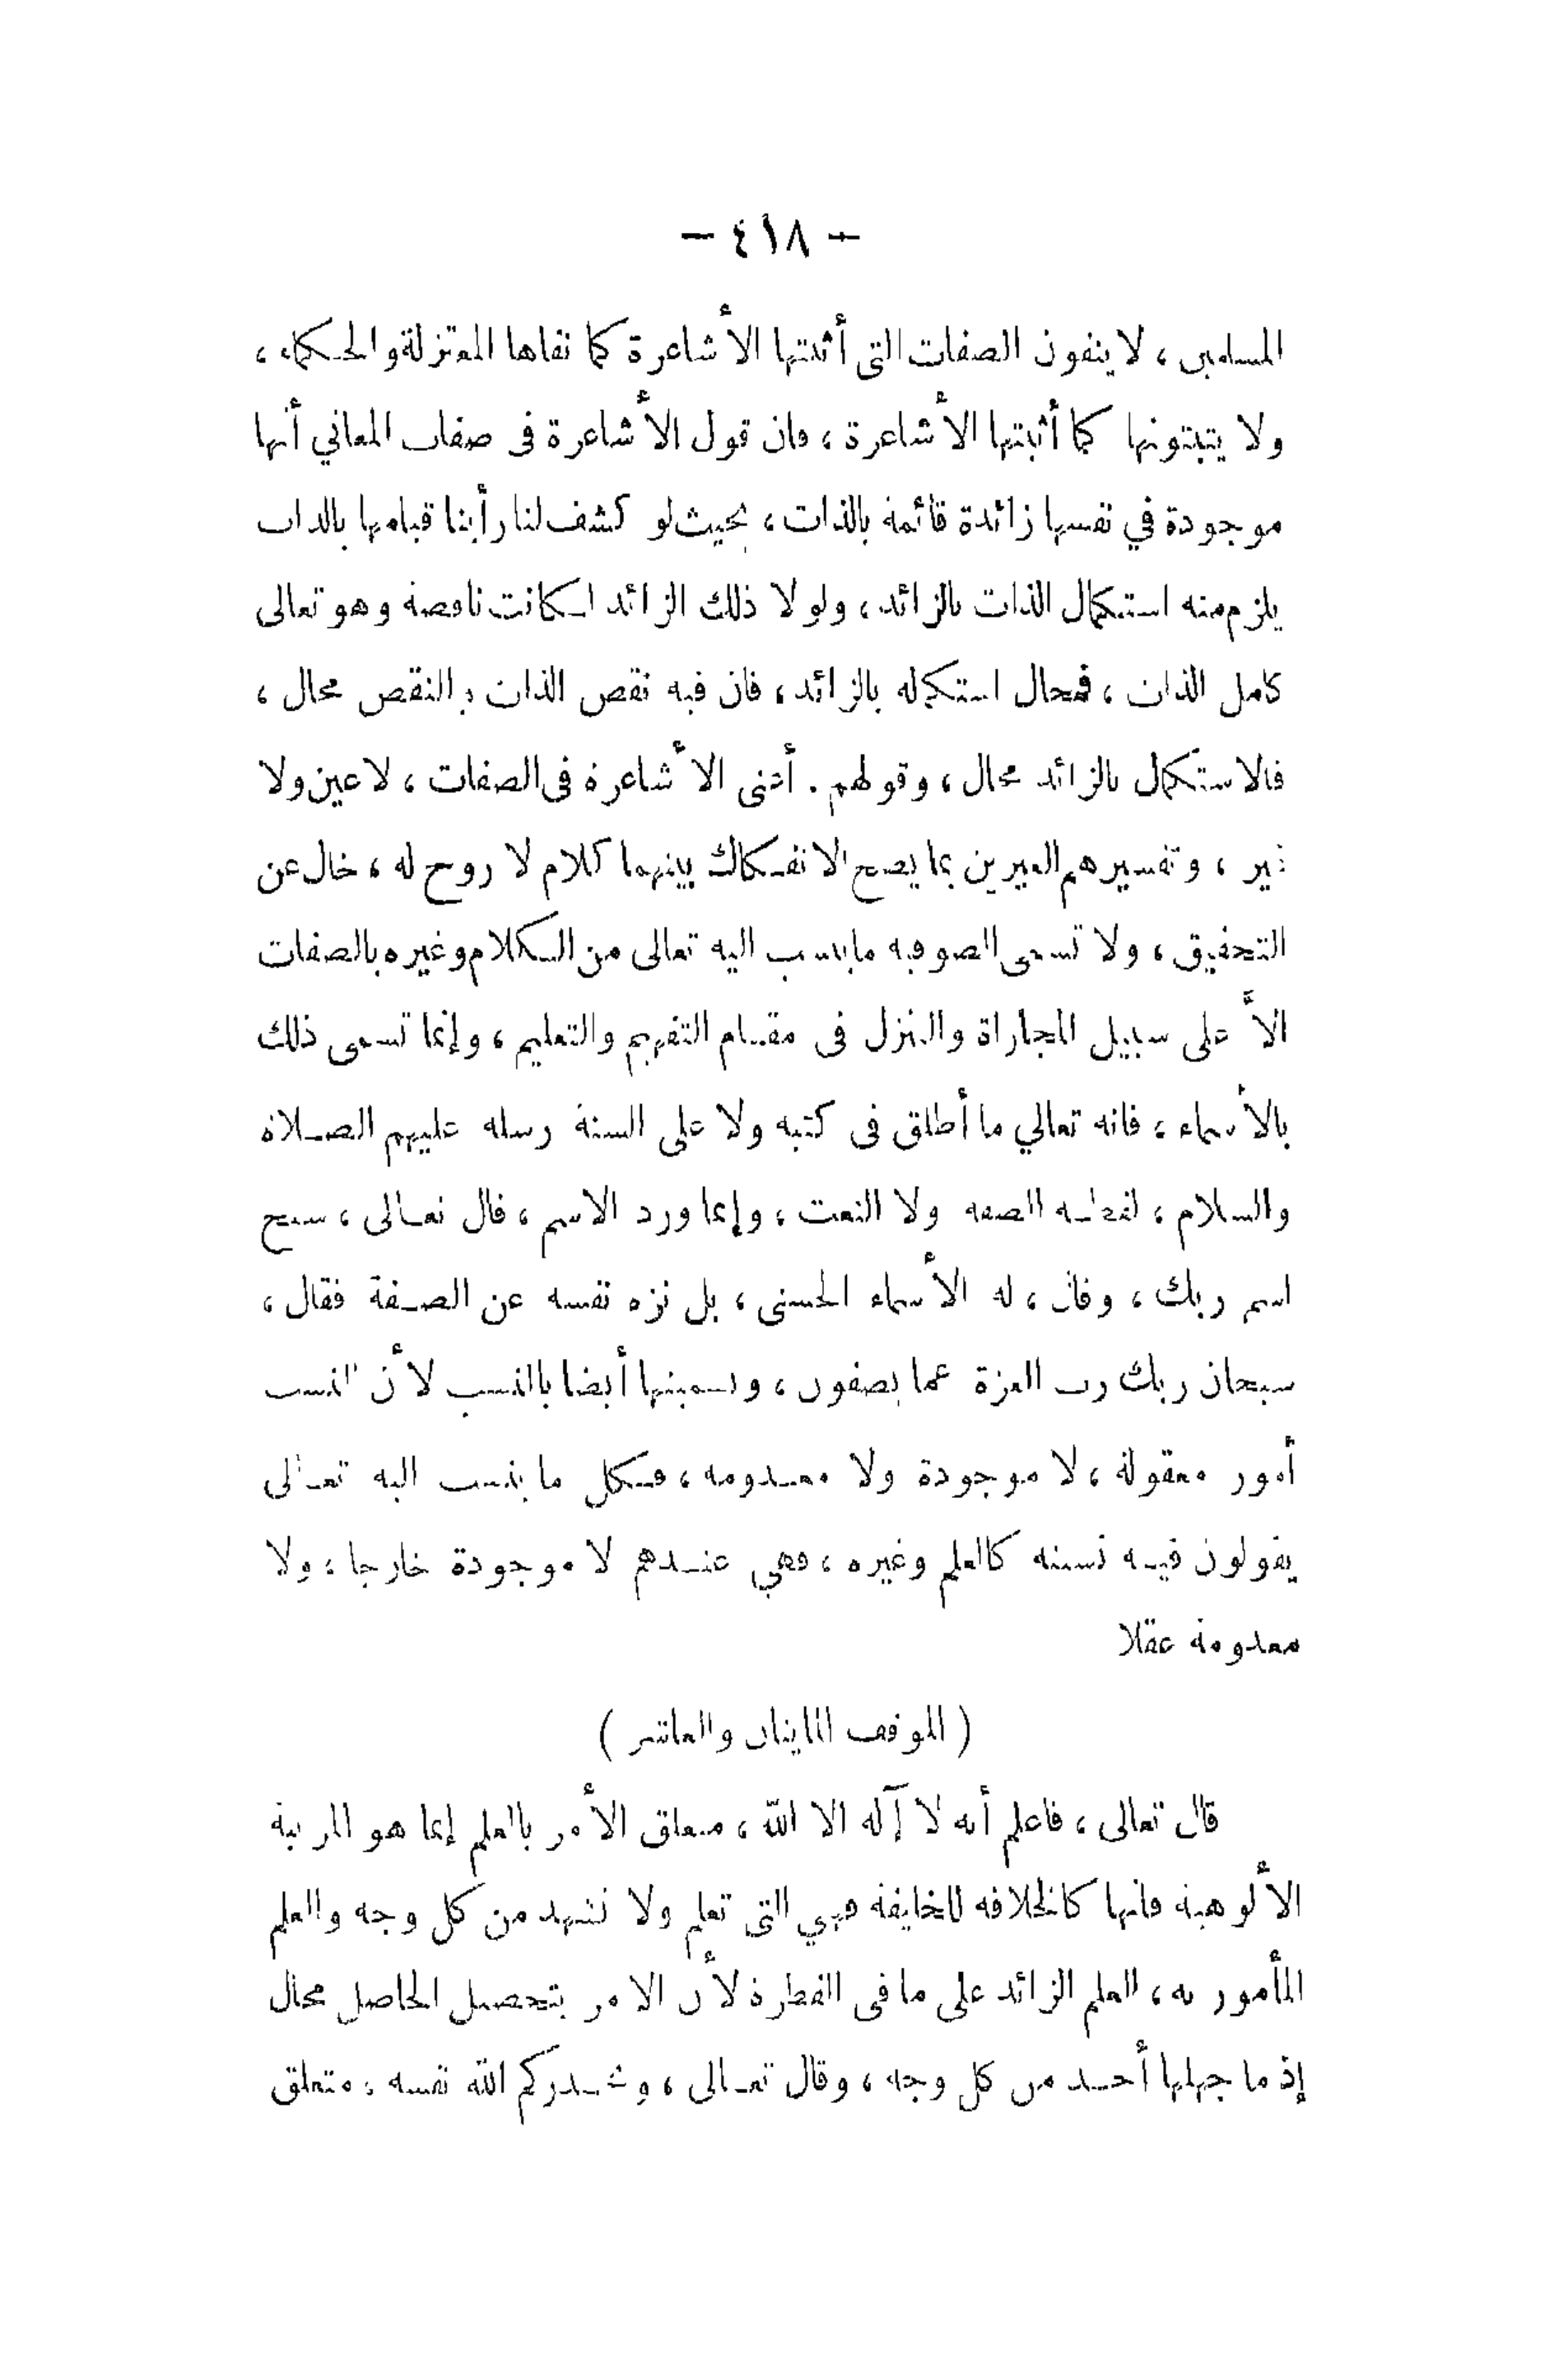 — ٤١٨ —
المسلمين ، لا ينفون الصفات التى أثبتتها الأشاعرة كما نفاها المعتزلة والحـكماء ،
ولا يثبتونها كما أثبتتها الأشاعرة ، فان قول الأشاعرة فى صفات المعاني أنها
موجودة في نفسها زائدة قائمة بالذات ، بحيث لو كشف لنا رأينا قيامها بالذات
يلزم منه استكمال الذات بالزائد ، ولولا ذلك الزائد لـكانت ناقصة وهو تعالى
كامل الذات ، فمحال استكماله بالزائد ، فان فيه نقص الذات والنقص محال ،
فالاستكمال بالزائد محال ، وقولهم . أعنى الأشاعرة فى الصفات ، لا عين ولا
غير ، وتفسيرهم الغيرين بما يصح الانفـكاك بينهما كلام لا روح له ، خال عن
التحقيق ، ولا تسمى الصوفية ما ينسب اليه تعالى من الـكلام وغيره بالصفات
الاَّ على سبيل المجاراة والتنزل فى مقـام التفهيم والتعليم ، وإنما تسمى ذلك
بالأسماء ، فانه تعالي ما أطلق فى كتبه ولا على السنة رسله عليهم الصـلاة
والسـلام ، لفظـه الصفه ولا النعت ، وإنما ورد الاسم ، قال تعـالى ، سبح
اسم ربك ، وقال ، له الأسماء الحسنى ، بل نزه نفسه عن الصـفة فقال ،
سبحان ربك رب العزة عما يصفون ، وتسميتها أيضا بالنسب لأن النسب
أمور معقولة ، لا موجودة ولا معـدومه ، فـكل ما ينسب اليه تعـالى
يقولون فيـه نسبته كالعلم وغيره ، فهي عنـدهم لا موجودة خارجا ، ولا
معدومة عقلا
( الموقف المايتان والعاشر )
قال تعالى ، فاعلم أنه لا آله الا اللّه ، متعلق الأمر بالعلم إنما هو المرتبة
الألوهية فانها كالخلافه للخليفة فهي التى تعلم ولا تشهد من كل وجه والعلم
المأمور به ، العلم الزائد على ما فى الفطرة لأن الامر بتحصيل الحاصل محال
إذ ما جهلها أحـد من كل وجه ، وقال تعـالى ، ويحـذركم اللّه نفسه ، متعلق